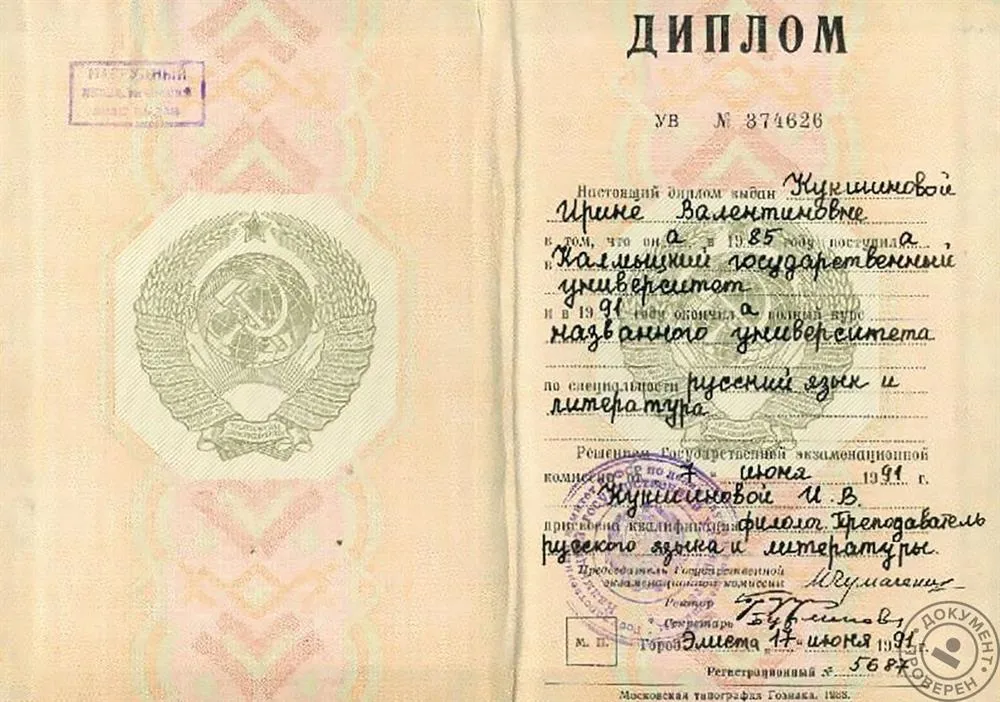 НАГРУДНЫЙ
ДИПЛОМ
УВ № 374626
Настоящий диплом выдан Кукшиновой
Ирине Валентиновне
в том, что она в 1985 году поступила
в Калмыцкий государственный
университет
и в 1991 году окончила полный курс
названного университета
по специальности русский язык и
литература
Решением Государственной экзаменационной
комиссии от „7“ июня 1991 г.
Кукшиновой И. В.
присвоена квалификация филолог. Преподаватель
русского языка и литературы.
Председатель Государственной
экзаменационной комиссии
Ректор
Секретарь
М. П.
Город Элиста „17“ июня 1991 г.
Регистрационный № 5687
Московская типография Гознака. 1988.
ДОКУМЕНТ ПРОВЕРЕН